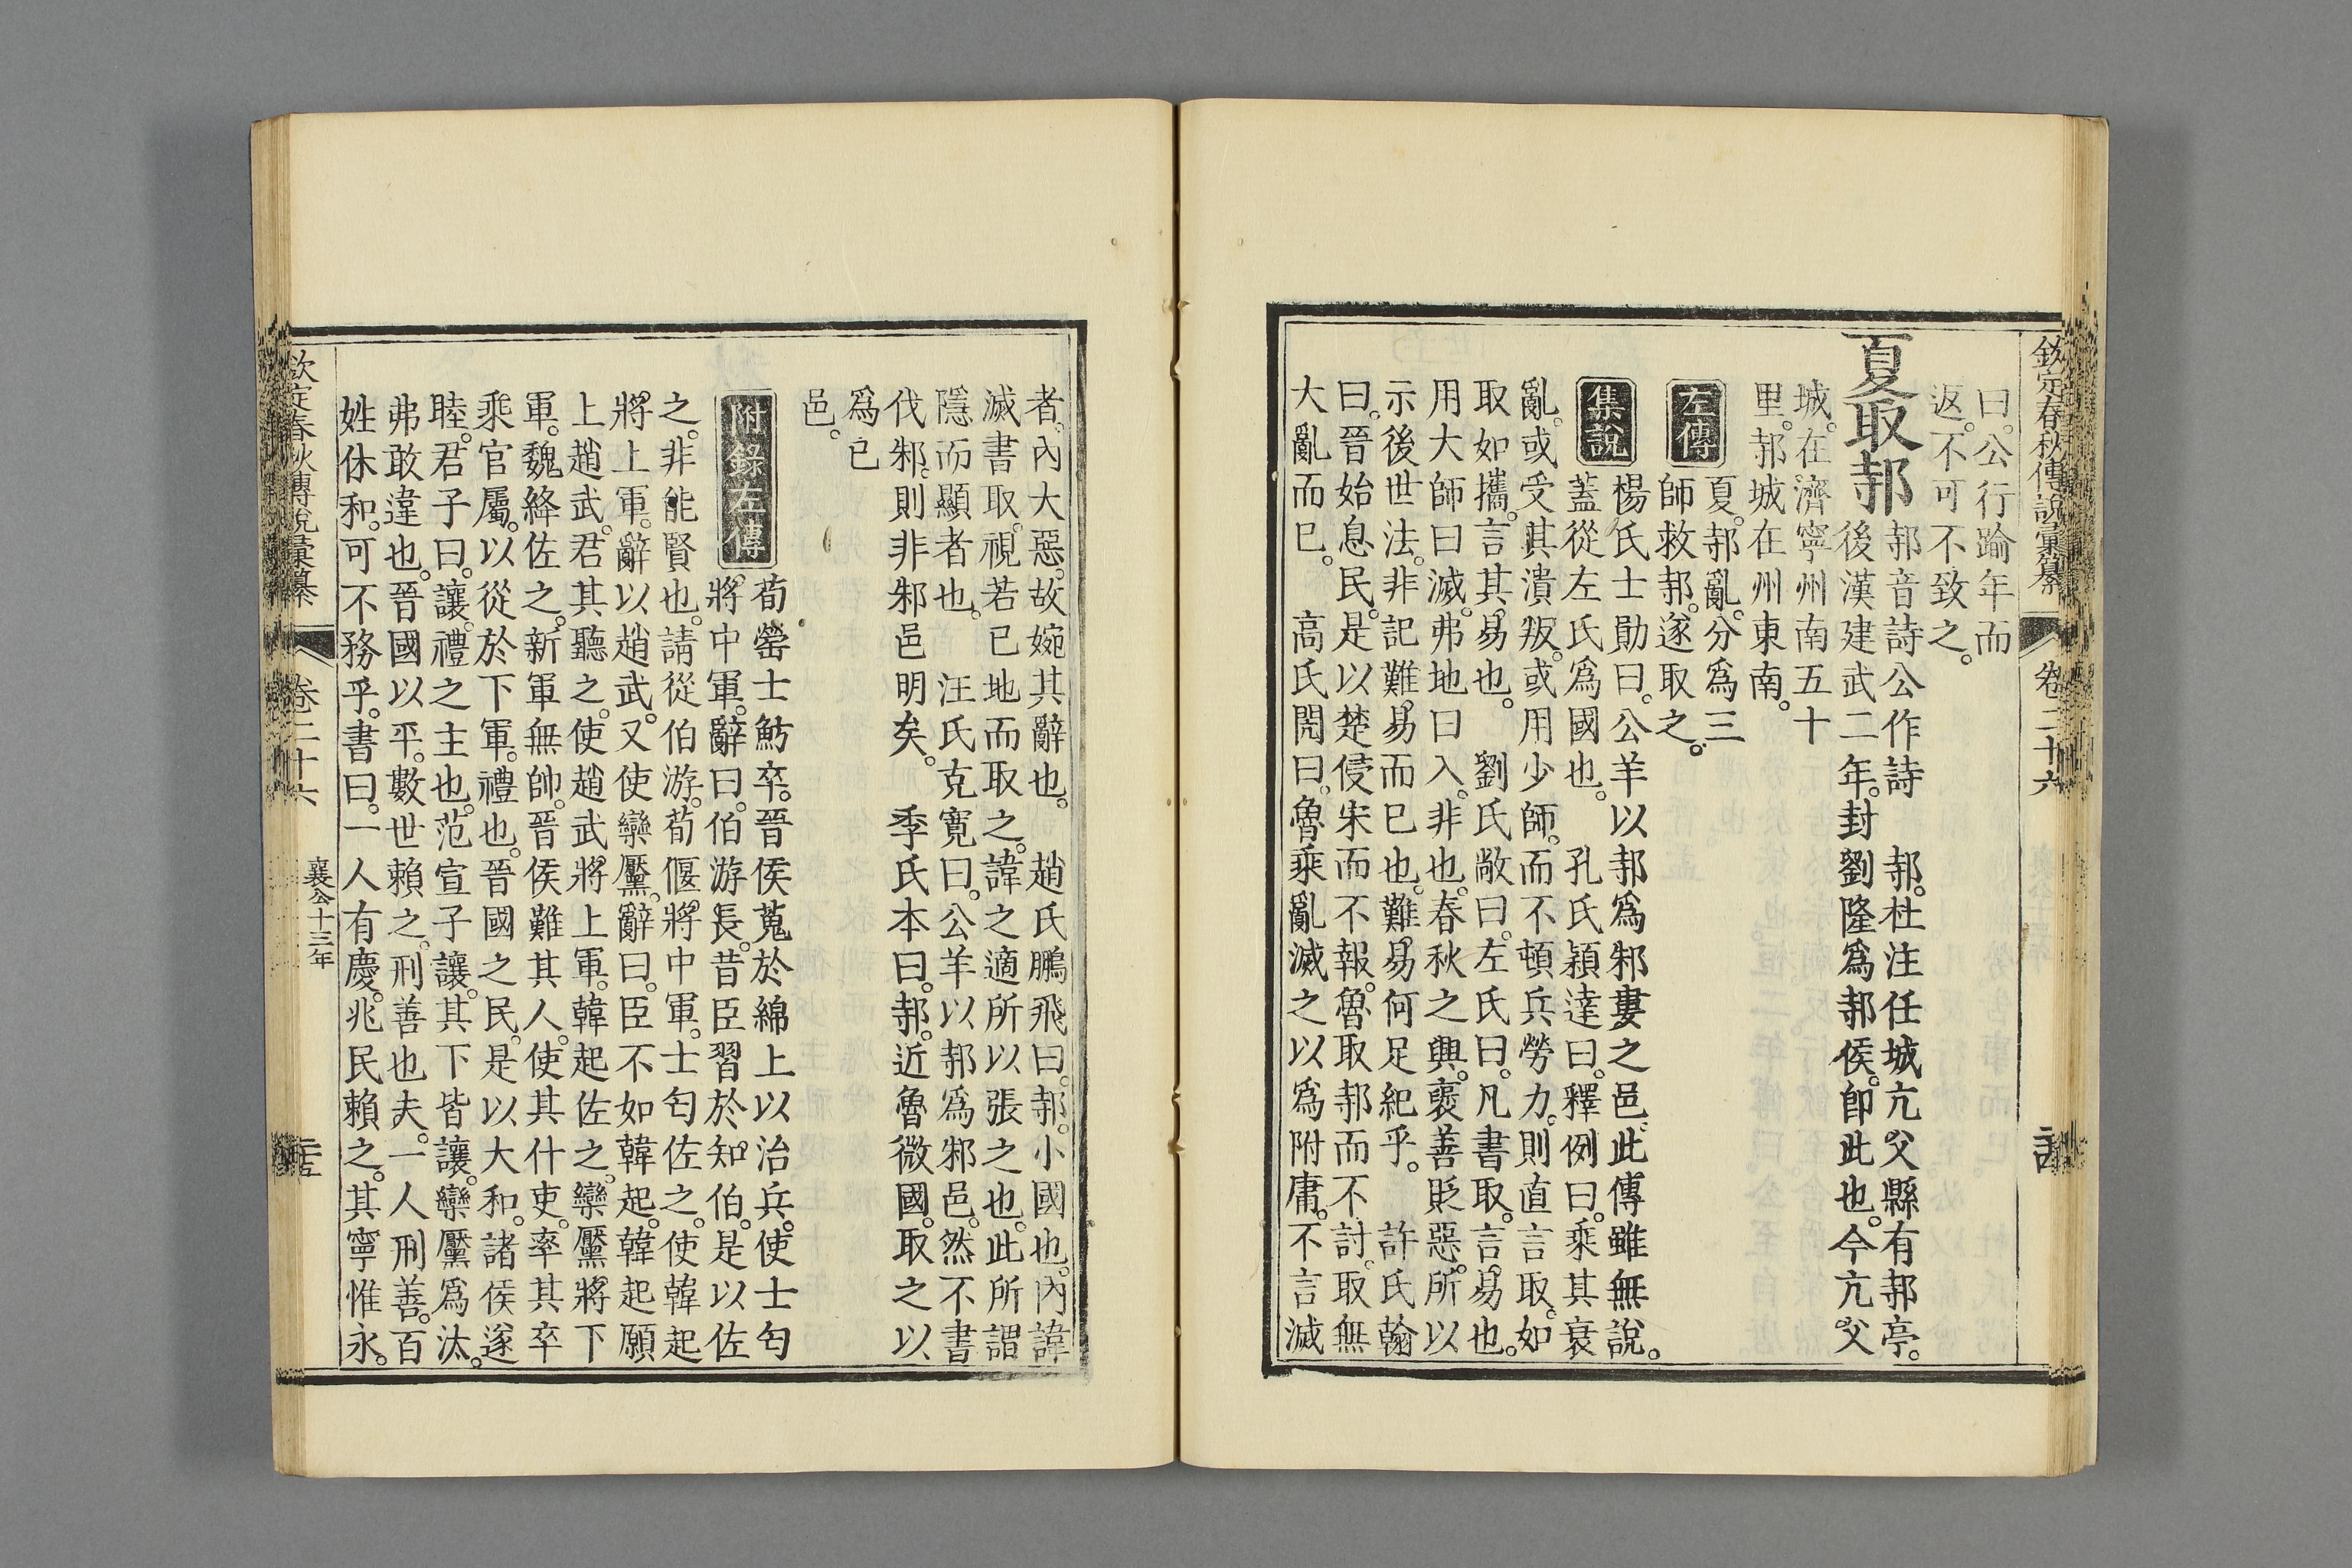 欽定春秋傳說彙纂 卷二十六
曰。公行踰年而
返。不可不致之。
夏取邿
邿音詩公作詩 邿。杜注任城亢父縣有邿亭。
後漢建武二年。封劉隆爲邿侯。卽此也。今亢父
城。在濟寧州南五十
里。邿城在州東南。
左傳
夏。邿亂。分爲三
師救邿。遂取之。
集說
楊氏士勛曰。公羊以邿爲邾婁之邑。此傳雖無說。
蓋從左氏爲國也。 孔氏穎達曰。釋例曰。乘其衰
亂。或受其潰叛。或用少師。而不頓兵勞力。則直言取。如
取如攜。言其易也。 劉氏敞曰。左氏曰。凡書取。言易也。
用大師曰滅。弗地曰入。非也。春秋之興。褒善貶惡。所以
示後世法。非記難易而已也。難易何足紀乎。 許氏翰
曰。晉始息民。是以楚侵宋而不報。魯取邿而不討。取無
大亂而已。 高氏閌曰。魯乘亂滅之以爲附庸。不言滅
者。內大惡。故婉其辭也。 趙氏鵬飛曰。邿。小國也。內諱
滅書取。視若已地而取之。諱之適所以張之也。此所謂
隱而顯者也。 汪氏克寬曰。公羊以邿爲邾邑。然不書
伐邾。則非邾邑明矣。 季氏本曰。邿。近魯微國。取之以
爲已
邑。
附錄左傳
荀罃士魴卒。晉侯蒐於綿上以治兵。使士匄
將中軍。辭曰。伯游長。昔臣習於知伯。是以佐
之。非能賢也。請從伯游。荀偃。將中軍。士匄佐之。使韓起
將上軍。辭以趙武。又使欒黶。辭曰。臣不如韓起。韓起願
上趙武。君其聽之。使趙武將上軍。韓起佐之。欒黶將下
軍。魏絳佐之。新軍無帥。晉侯難其人。使其什吏。率其卒
乘官屬。以從於下軍。禮也。晉國之民。是以大和。諸侯遂
睦。君子曰。讓。禮之主也。范宣子讓。其下皆讓。欒黶爲汰。
弗敢違也。晉國以平。數世賴之。刑善也夫。一人刑善。百
姓休和。可不務乎。書曰。一人有慶。兆民賴之。其寧惟永。
欽定春秋傳說彙纂 卷二十六 襄公十三年